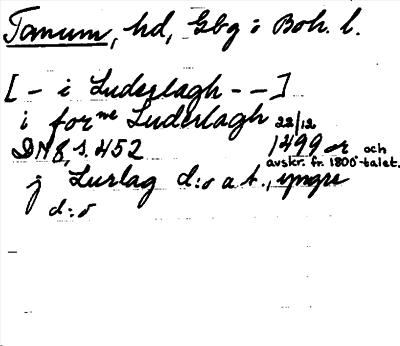 Tanum, hd, Gbg o Boh. l.
[- i Luderlagh - -]
i forne Luderlagh 22/12
DN 8, s. 452 1499 or och
avskr. fr. 1800-talet.
j Lurlag d:o a t., yngre
d:o